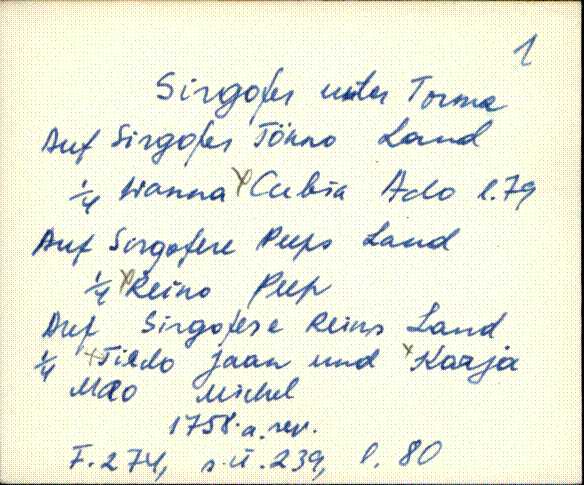 1
Sirgofer unter Torma
Auf Sirgofer Tönno Land
1/4 Wanna Cubia Ado l. 79
Auf Sirgofere Peeps Land
1/4 Reino Peep
Auf Sirgofere Reins Land
1/4 Jaan und Karja
Mäo Michel
1758. a. rev.
F. 274, s. ü. 239, l. 80